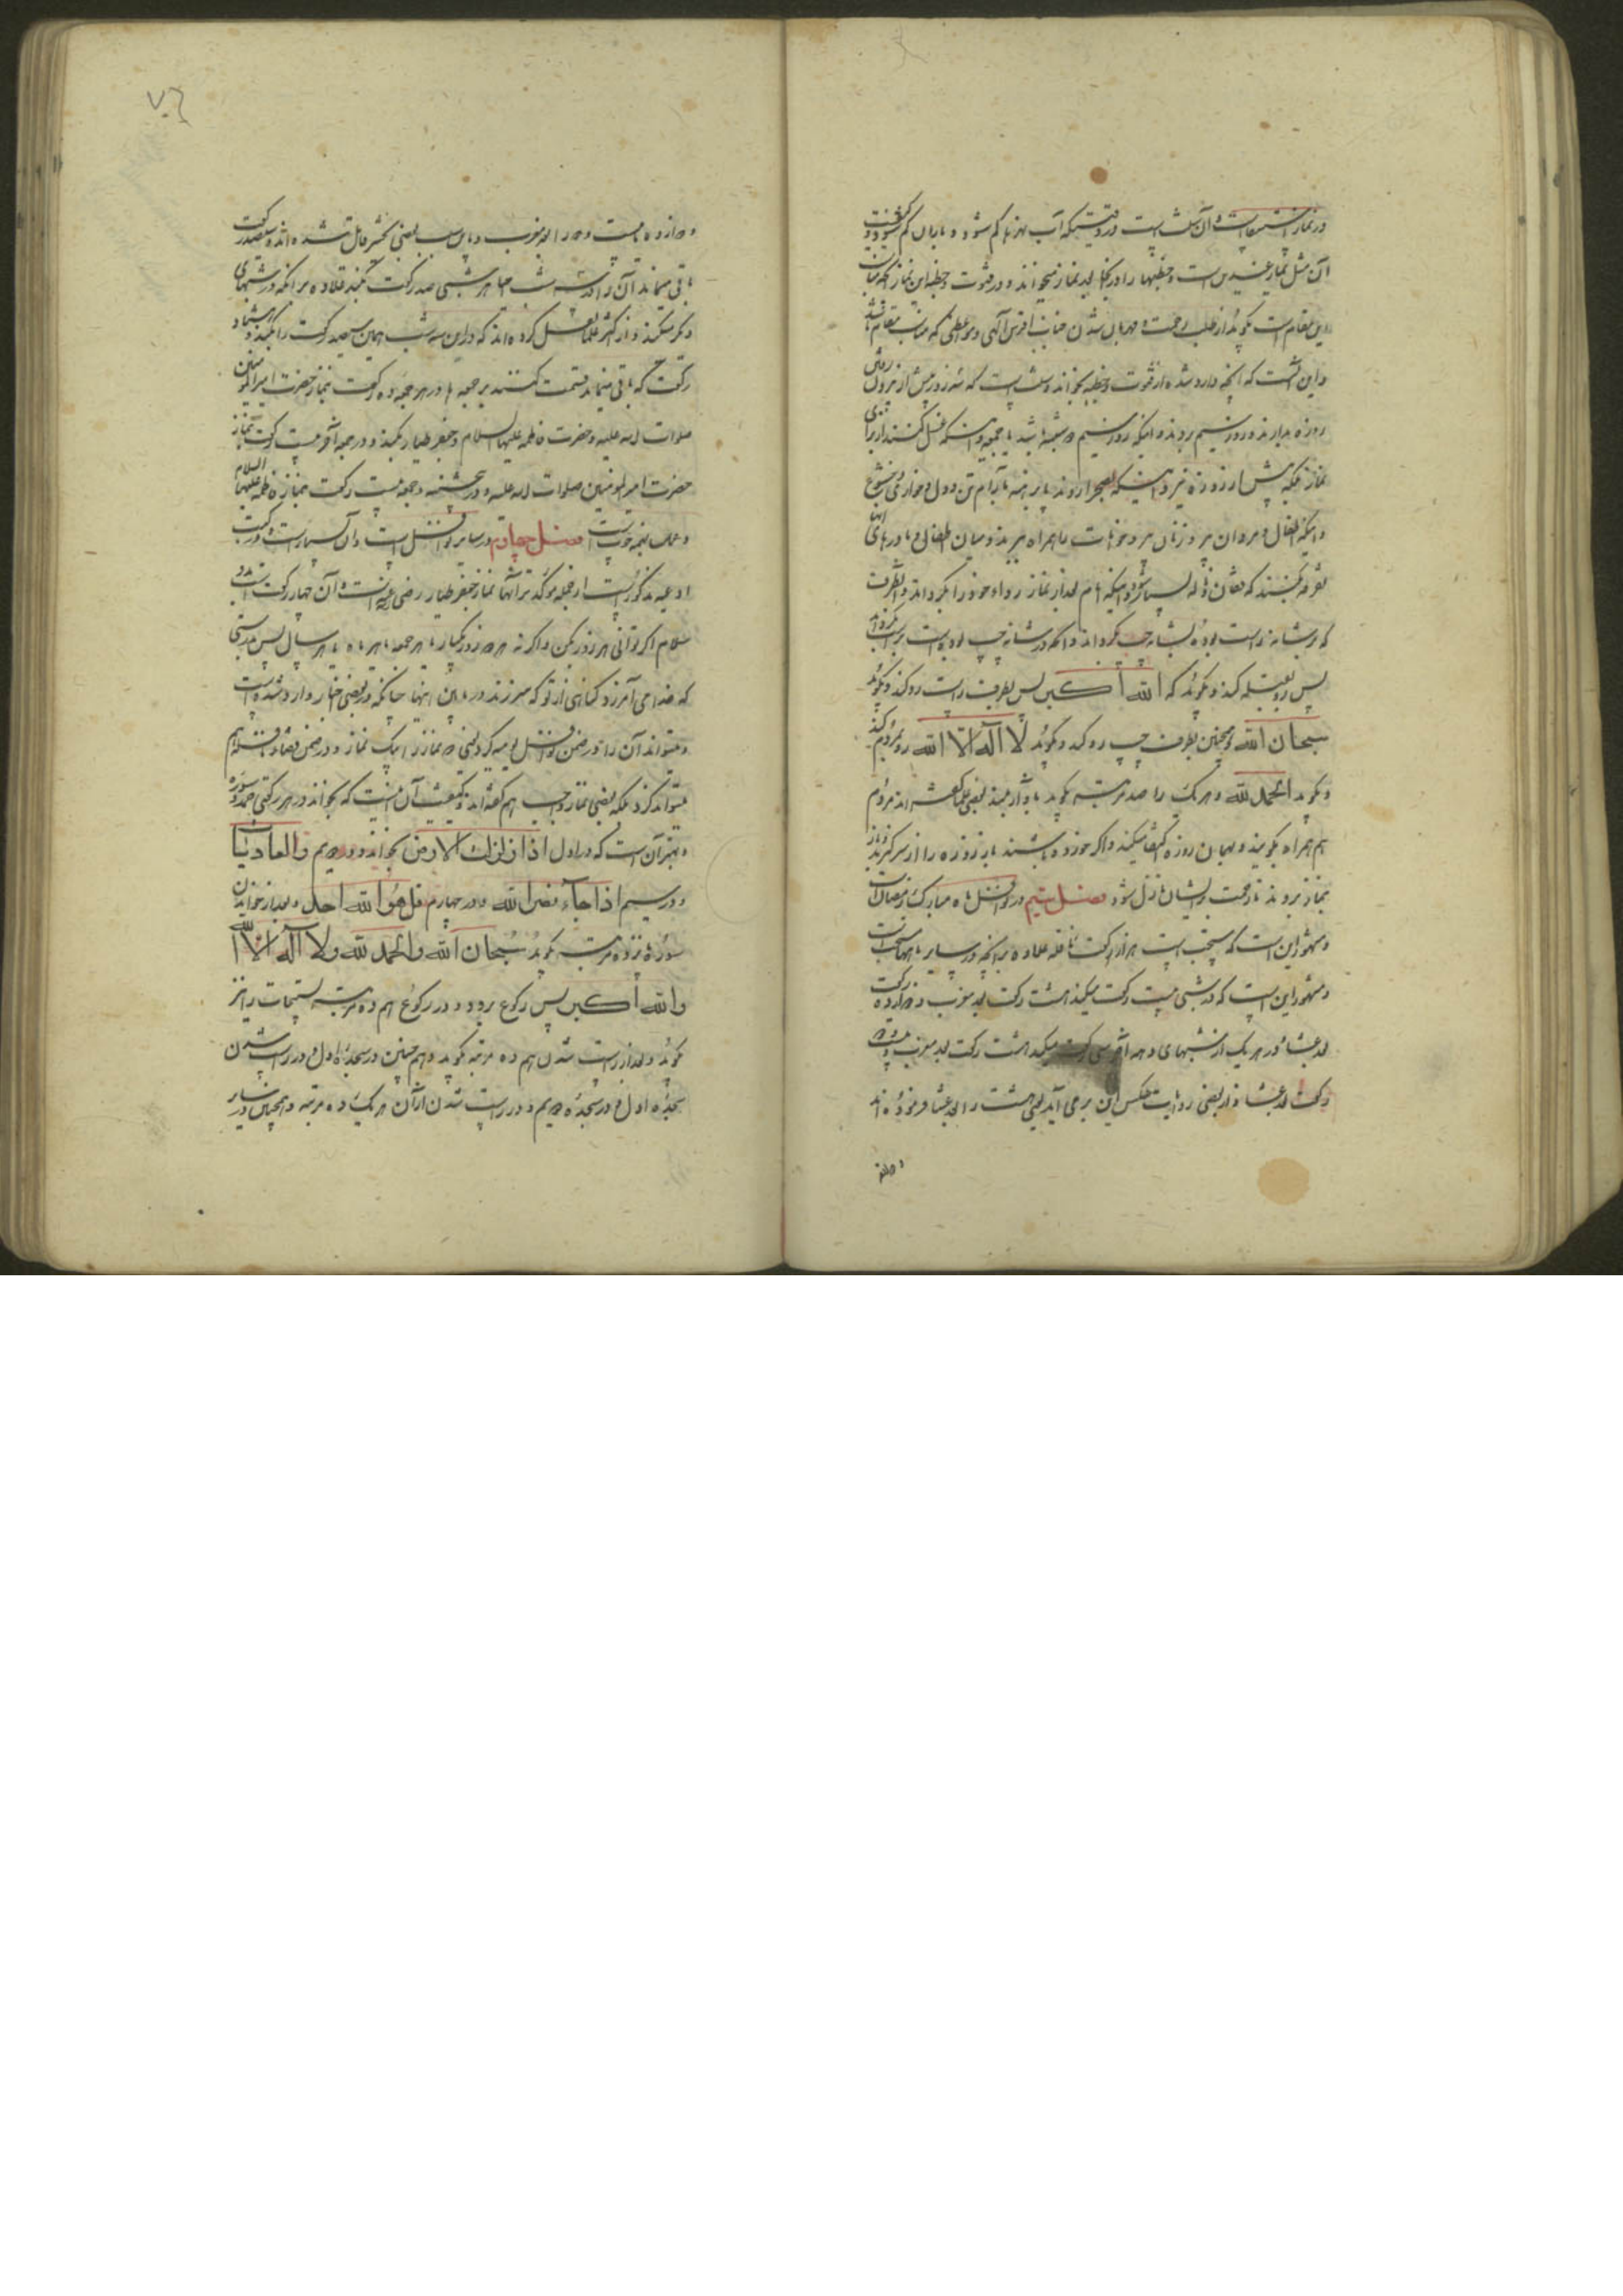 در نماز استسقا است و آن سنت است در وقتیکه آب نهرها کم شود و باران کم شود و
آن مثل نماز عیدین است و خطبها را در اینجا بعد نماز میخوانند و در قنوت و خطبه این نماز آنچه مناسب
این مقام است بگوید از طلب رحمت و مهربان شدن جناب اقدس الهی و موعظی که مناسب مقام باشد
و این است که آنچه وارد شده از قنوت و خطبه بخواند و سنت است که سه روز پیش از بیرون رفتن
روزه بدارند و روز سیم بروند و اینکه روز سیم دوشنبه باشد یا جمعه و اینکه غسل کنند از برای
نماز بلکه پیش از روزه نیز و اینکه بصحرا روند پا برهنه بآرام تن و دل و خواری و خشوع
و اینکه اطفال و مردان پیر و زنان پیر و حیوانات را همراه ببرند و میان اطفال و مادرهای آنها
تفرقه کنند که فغان و ناله بسیار شود و اینکه امام بعد از نماز رداء خود را بگرداند و آنطرف
که بر شانه راست بوده بشانه چپ گرداند و آنکه در شانه چپ بوده است براست گرداند
پس رو بقبله کند و بگوید که الله اکبر پس بطرف راست رو کند و بگوید
سبحان الله و همچنین بطرف چپ رو کند و بگوید لا اله الا الله رو بمردم کند
و بگوید الحمد لله و هر یک را صد مرتبه بگوید بآواز بلند بعضی علما گفته اند مردم
هم همراه بگویند و بهمان روزه اکتفا میکنند و اگر خورده باشند باز روزه را از سر گیرند و باز
بنماز بروند تا رحمت بر ایشان نازل شود فصل سیم در نوافل ماه مبارک رمضان است
و مشهور این است که مستحب است هزار رکعت نافله علاوه بر آنچه در سایر ماهها سنت است
و مشهور این است که در شبی بیست رکعت میکند هشت رکعت بعد مغرب و دوازده رکعت
بعد عشا و در هر یک از شبهای دهه آخر سی رکعت میکند هشت رکعت بعد مغرب و بیست و دو
رکعت بعد عشا و از بعضی روایت عکس این بر می آید یعنی هشت را بعد عشا فرموده اند
و دوازده
و دوازده یا بیست و دو را بعد مغرب و باین سبب بعضی بتخییر قایل شده اند و سیصد رکعت
باقی میماند آن را در سه شب احیا هر شبی صد رکعت میکند علاوه بر آنچه در شبهای
دیگر میکند و از اکثر علما نقل کرده اند که در این سه شب همین سیصد رکعت را بکند و هشتاد
رکعت که باقی میماند قسمت کنند بر جمعه ها در هر جمعه ده رکعت بنماز حضرت امیر المؤمنین
صلوات الله علیه و حضرت فاطمه علیها السلام و جعفر طیار بکنند و در جمعه آخر بیست رکعت بنماز
حضرت امیر المؤمنین صلوات الله علیه و در پنجشنبه و جمعه بیست رکعت بنماز فاطمه علیها السلام
و عمل بهمه خوب است فصل چهارم در سایر نوافل است و آن بسیار است و در کتب
ادعیه مذکور است از جمله مؤکدتر آنها نماز جعفر طیار رضی الله عنه است و آن چهار رکعت است بدو
سلام اگر توانی هر روز بکن و اگر نه هر دو روز یکبار یا هر جمعه یا هر ماه یا هر سال پس بدرستی
که خدا می آمرزد گناهی از تو که سر زند در مابین اینها چنانکه در بعضی اخبار وارد شده است
و میتواند آن را در ضمن نوافل یومیه کرد یعنی دو نماز را یک نماز و در ضمن قضاء نوافل هم
میتواند کرد بلکه بعضی نماز واجب هم گفته اند و کیفیت آن اینست که بخواند در هر رکعتی حمد و سوره
و بهتر آن است که در اول اذا زلزلت الارض بخواند و در دویم والعادیات
و در سیم اذا جاء نصر الله و در چهارم قل هو الله احد و بعد از خواندن
سوره پانزده مرتبه بگوید سبحان الله والحمد لله ولا اله الا الله
والله اکبر پس رکوع برود و در رکوع هم ده مرتبه تسبیحات را نیز
بگوید و بعد از راست شدن هم ده مرتبه بگوید و هم چنین در سجده اول و در راست شدن
سجده اول و در سجده دویم و در راست شدن از آن هر یک ده مرتبه و همچنین در سایر